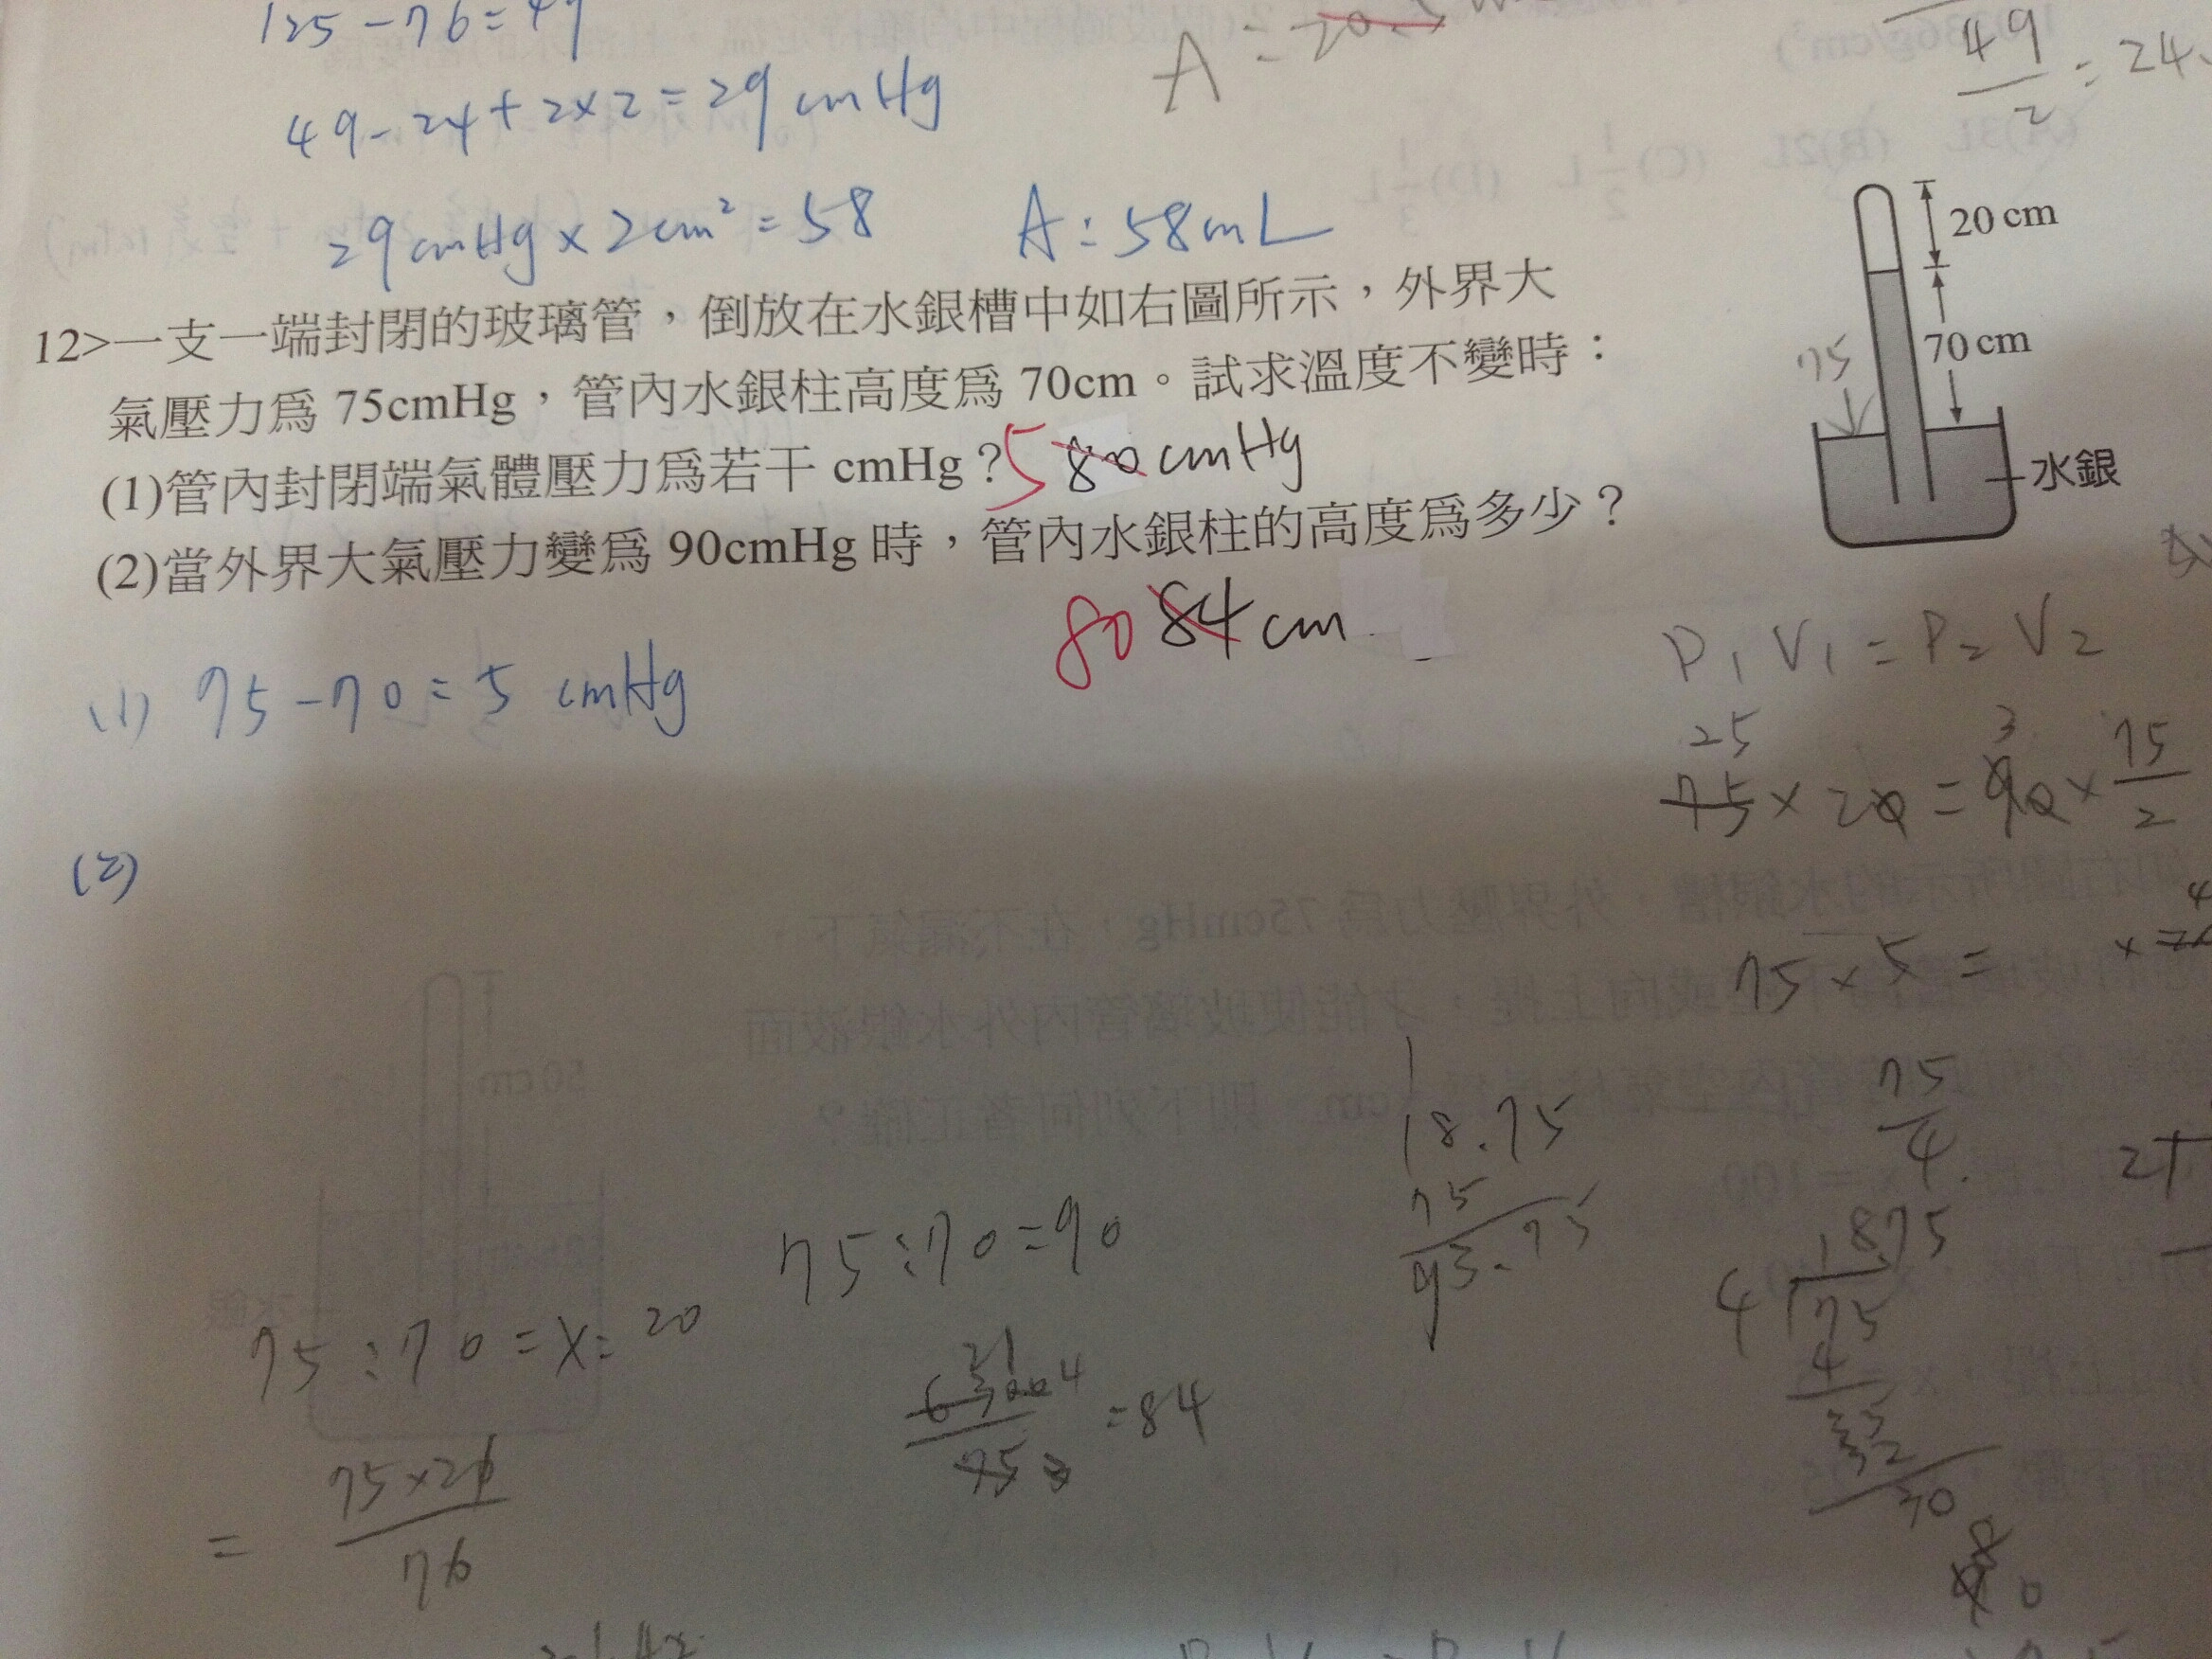 125-76=49
49-24+2×2=29 cmHg
29cmHg×2cm²=58 A:58mL
49/2=24.
12>一支一端封閉的玻璃管，倒放在水銀槽中如右圖所示，外界大
氣壓力爲 75cmHg，管內水銀柱高度爲 70cm。試求溫度不變時：
(1)管內封閉端氣體壓力爲若干 cmHg？5 80 cmHg
(2)當外界大氣壓力變爲 90cmHg 時，管內水銀柱的高度爲多少？
80 84 cm
20 cm
70 cm
75
水銀
(1) 75-70=5 cmHg
(2)
P₁V₁=P₂V₂
25 3
75×20=90×75/2
75×5=
18.75
75
93.75
75/4
18.75
4 75
4
35
32
30
80
75:70=90
84
75:70=X:20